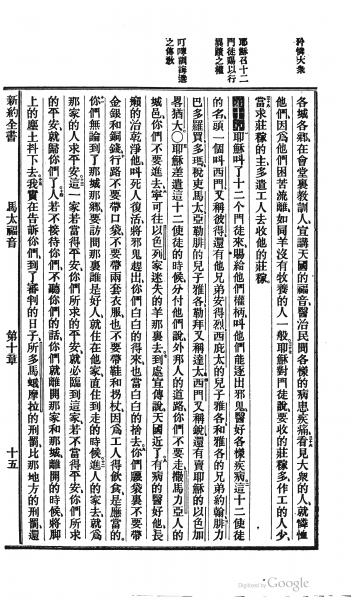 矜憐大衆
耶穌召十二
門徒賜以行
異蹟之權
叮嚀訓誨遣
之傳教
各城各鄉在會堂裏教訓人宣講天國的福音醫治民間各樣的病患疾痛看見大衆的人就憐恤
他們因爲他們困苦流離如同羊沒有牧養的人一般耶穌對門徒說要收的莊稼多作工的人少
當求莊稼的主多遣工人去收他的莊稼
第十章耶穌叫了十二個門徒來賜給他們權柄叫他們能逐出邪鬼醫好各樣疾病這十二使徒
的名頭一個叫西門又稱彼得還有他兄弟安得烈西庇太的兒子雅各和雅各的兄弟約翰腓力
巴多羅買多瑪稅吏馬太亞勒腓的兒子雅各勒拜又稱達太西門又稱銳還有賣耶穌的以色加
畧猶大〇耶穌差遣這十二使徒的時候分付他們說外邦人的道路你們不要走撒馬力亞人的
城邑你們不要進去寧可往以色列家迷失的羊那裏去到處宣傳說天國近了有病的醫好他長
癩的治乾淨他叫死人復活將邪鬼趕出你們白白的得來也當白白的捨去你們腰袋裏不要帶
金銀和銅錢行路不要帶口袋不要帶兩套衣服也不要帶鞋和柺杖因爲工人得飲食是應當的
你們無論到了那城那鄉要訪問那裏誰是好人就住在他家直住到走的時候進人的家去就爲
那家的人求平安這一家若當得平安你們所求的平安就必臨到這家若不當得平安你們所求
的平安就歸你們了人若不接待你們不聽你們的話你們就離開那家和那城離開的時候將脚
上的塵土抖下去我實在告訴你們到了審判的日子所多馬蛾摩拉的刑罰比那地方的刑罰還
新約全書
馬太福音
第十章
十五
Digitized by Google